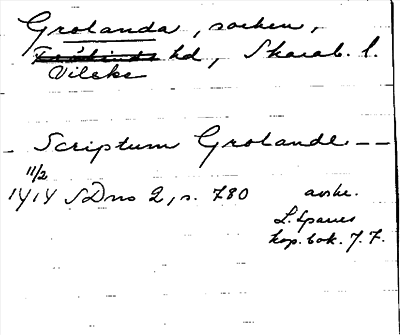 Grolanda, socken,
Frökinds hd, Skarab. l.
Vilske
Scriptum Grolande --
11/2
1414 SDns 2, s. 780 avskr.
L. Sparres
kop. bok. 7. F.